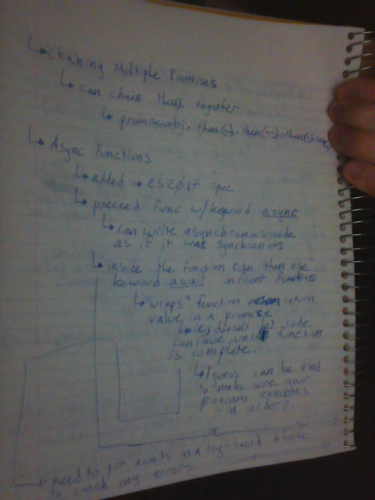 ↳ chaining Multiple Promises
↳ can chain thens together
↳ promiseobj.then(~).then(~).then(~)
↳ Async Functions
↳ added → ES2017 spec
↳ preceed func w/ keyword async
↳ can write asynchronous code
as if it was synchronous
↳ inside the function can then use
keyword await in front functions
↳ "wraps" function return
value in a promise
↳ ej doesn't let code
continue until function
is complete.
↳ I guess can be used
to make sure your
program executes
in order?
→ need to put awaits in a try-catch block
to catch any errors.